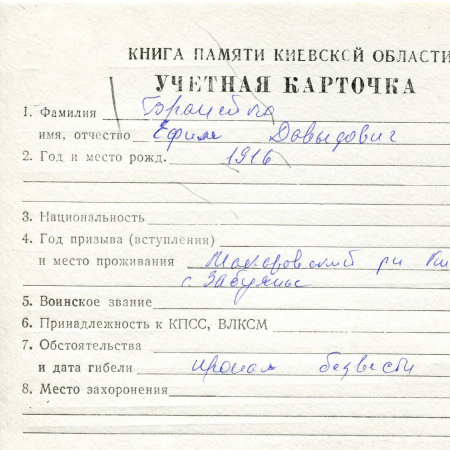 КНИГА ПАМЯТИ КИЕВСКОЙ ОБЛАСТИ
УЧЕТНАЯ КАРТОЧКА
1. Фамилия
имя, отчество Ефим Давыдович
2. Год и место рожд. 1916
3. Национальность
4. Год призыва (вступления)
и место проживания Макаровский рн
с Забуянье
5. Воинское звание
6. Принадлежность к КПСС, ВЛКСМ
7. Обстоятельства
и дата гибели пропал безвести
8. Место захоронения